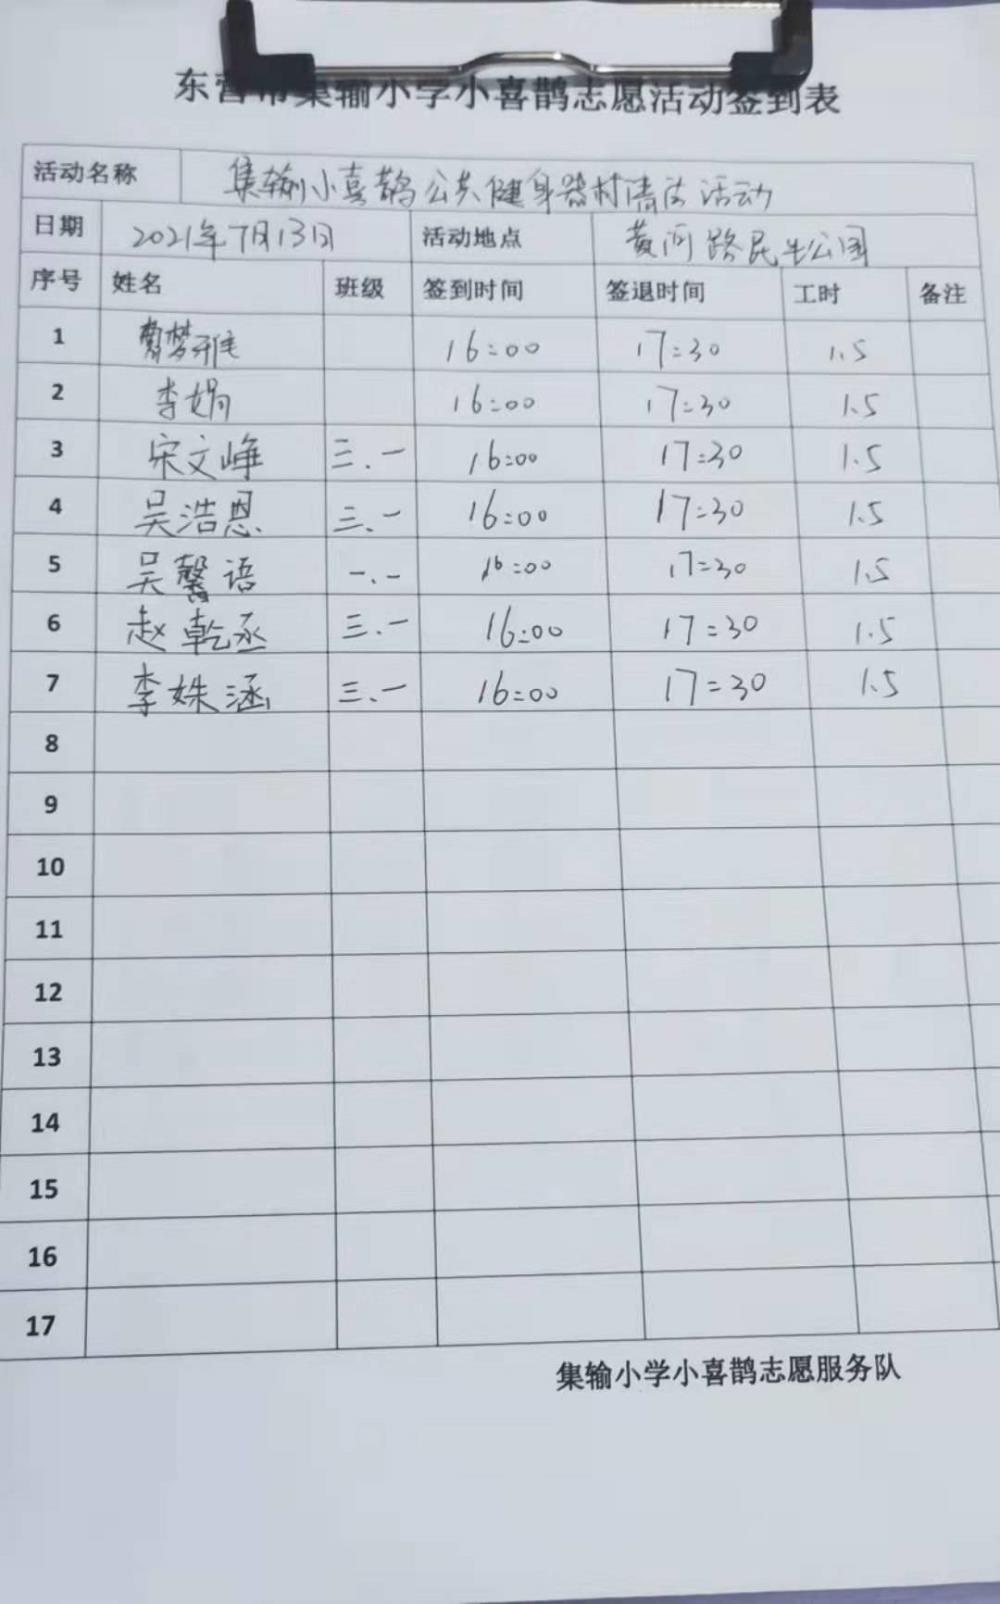 东营市集输小学小喜鹊志愿活动签到表
活动名称 集输小喜鹊公共健身器材清洁活动
日期 2021年7月13日 活动地点 黄河路民生公园
序号 姓名 班级 签到时间 签退时间 工时 备注
1 梦雅 16:00 17:30 1.5
2 李娟 16:00 17:30 1.5
3 宋文峥 三.一 16:00 17:30 1.5
4 吴浩恩 三.一 16:00 17:30 1.5
5 吴馨语 一.一 16:00 17:30 1.5
6 赵乾丞 三.一 16:00 17:30 1.5
7 李姝涵 三.一 16:00 17:30 1.5
8
9
10
11
12
13
14
15
16
17
集输小学小喜鹊志愿服务队